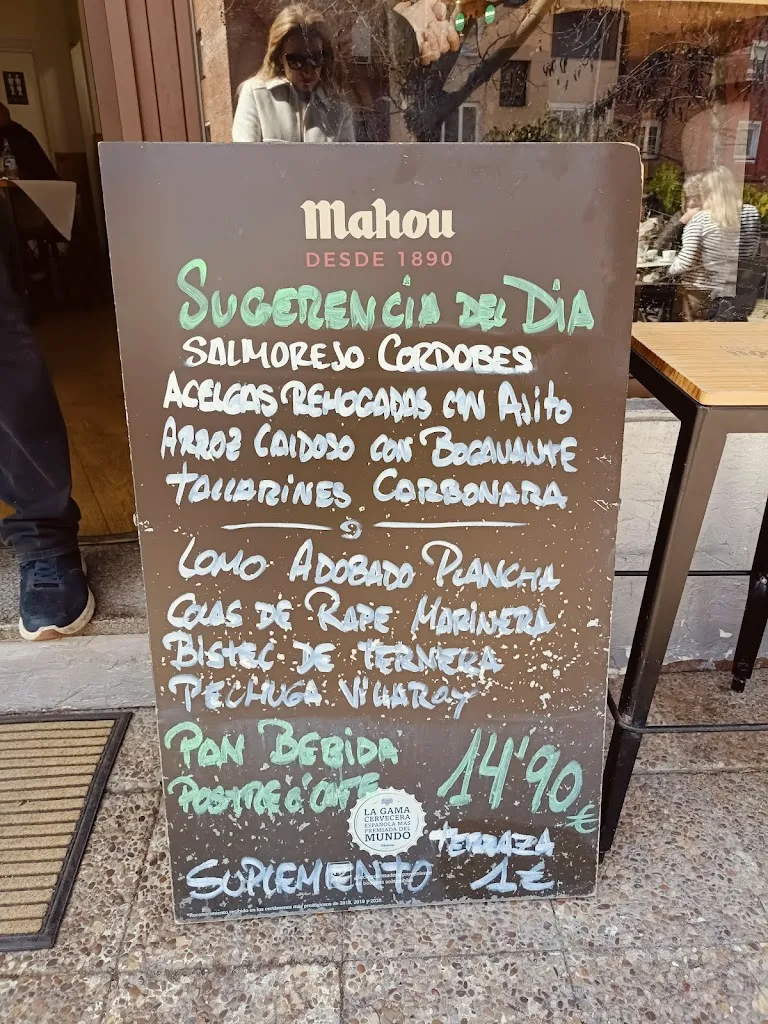 Mahou
DESDE 1890
SUGERENCIA DEL DIA
SALMOREJO CORDOBES
ACELGAS REHOGADAS CON AJITO
ARROZ CALDOSO CON BOGAVANTE
TALLARINES CARBONARA
LOMO ADOBADO PLANCHA
COLAS DE RAPE MARINERA
BISTEC DE TERNERA
PECHUGA VILLAROY
PAN BEBIDA
POSTRE O CAFE
14'90 €
LA GAMA
CERVECERA
ESPAÑOLA MÁS
PREMIADA DEL
MUNDO
TERRAZA
SUPLEMENTO 1€